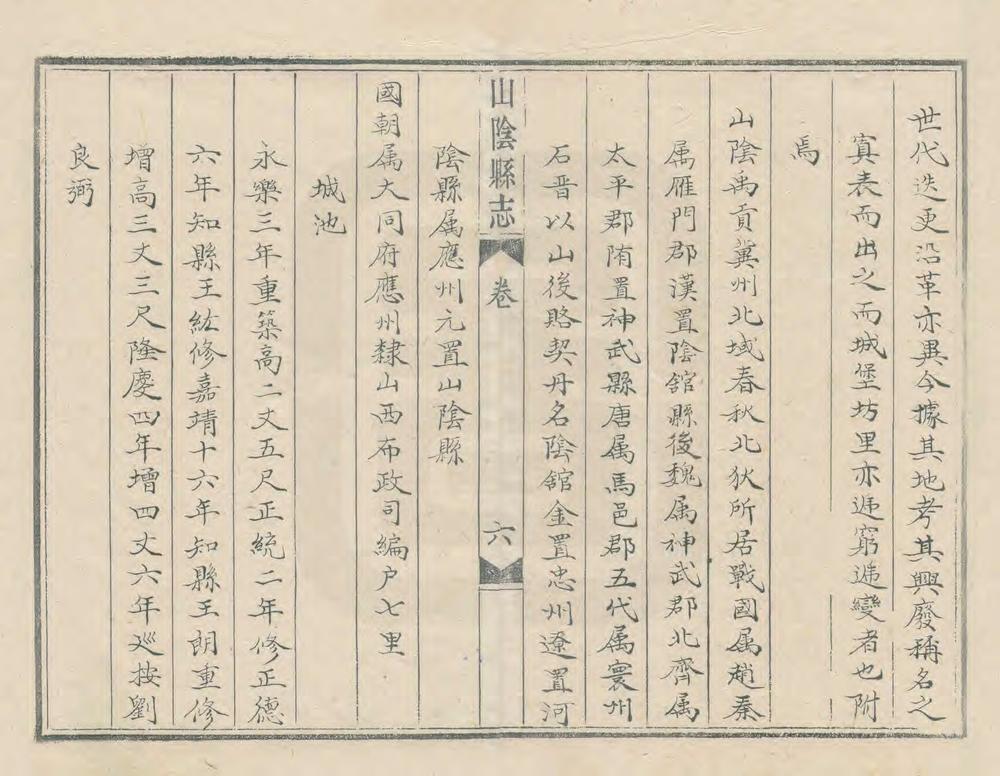 世代迭更沿革亦異今據其地考其興廢稱名之
寘表而出之而城堡坊里亦遞窮遞變者也附
焉
山陰禹貢冀州北域春秋北狄所居戰國属趙秦
属雁門郡漢置陰舘縣後魏属神武郡北齊属
太平郡陏置神武縣唐属馬邑郡五代属寰州
石晋以山後賂契丹名陰舘金置忠州遼置河
山陰縣志
卷
六
陰縣属應州元置山陰縣
國朝属大同府應州隸山西布政司編户七里
城池
永樂三年重築高二丈五尺正統二年修正德
六年知縣王紘修嘉靖十六年知縣王朗重修
增高三丈三尺隆慶四年增四丈六年巡按劉
良弼